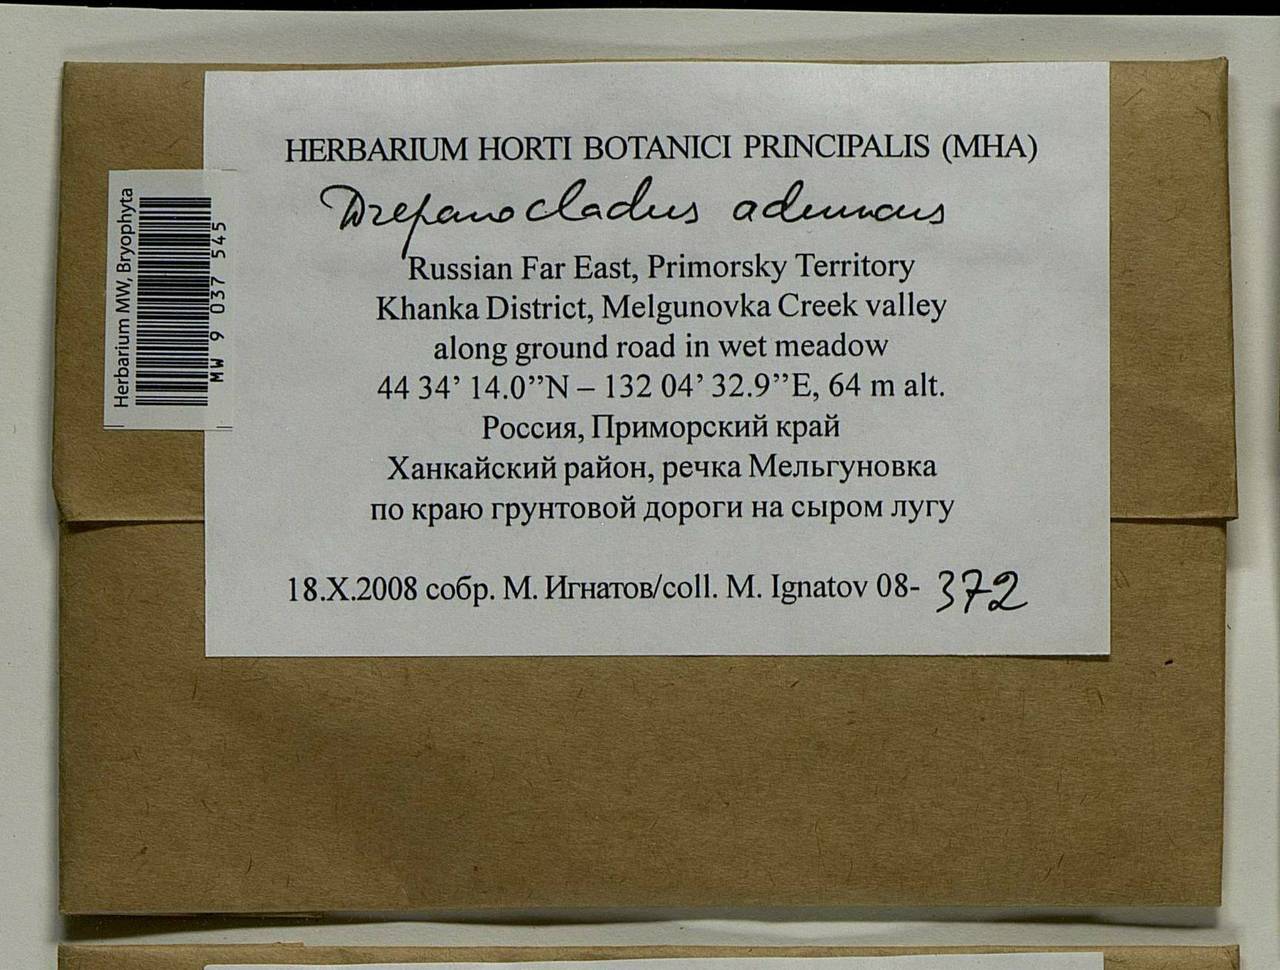 HERBARIUM HORTI BOTANICI PRINCIPALIS (MHA)
Drepanocladus aduncus
Russian Far East, Primorsky Territory
Khanka District, Melgunovka Creek valley
along ground road in wet meadow
44 34’ 14.0”N – 132 04’ 32.9”E, 64 m alt.
Россия, Приморский край
Ханкайский район, речка Мельгуновка
по краю грунтовой дороги на сыром лугу
18.X.2008 собр. М. Игнатов/coll. M. Ignatov 08- 372
Herbarium MW, Bryophyta
MW 9 037 545